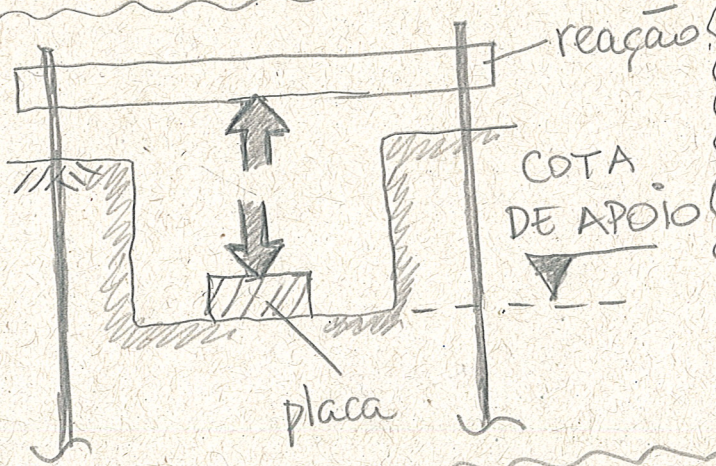 reação
COTA
DE APOIO
placa